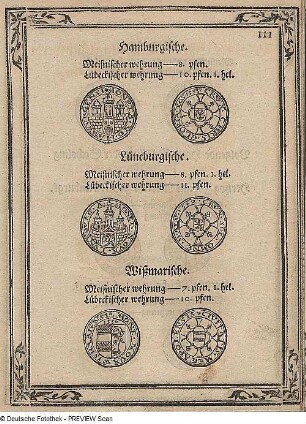 111
Hamburgische.
Meißnischer wehrung — 8. pfen.
Lübeckischer wehrung — 10. pfen. 1. hel.
Lüneburgische.
Meißnischer wehrung — 8. pfen. 1. hel.
Lübeckischer wehrung — 11. pfen.
Wißmarische.
Meißnischer wehrung — 7. pfen. 1. hel.
Lübeckischer wehrung — 10. pfen.
© Deutsche Fotothek - PREVIEW Scan